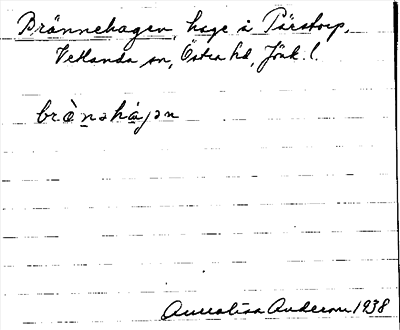 Brännehagen, hage i Pärstorp,
Vetlanda sn, Östra hd, Jönk. l.
brä̀nəhá̱jən
Annalisa Anderson 1938